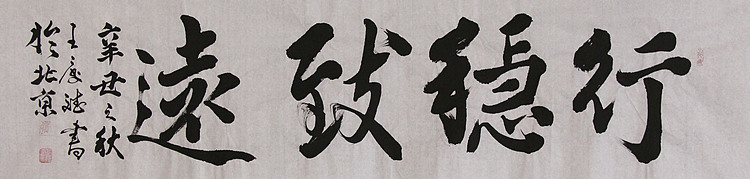 行穩致遠
辛丑之秋
王 書
於北京